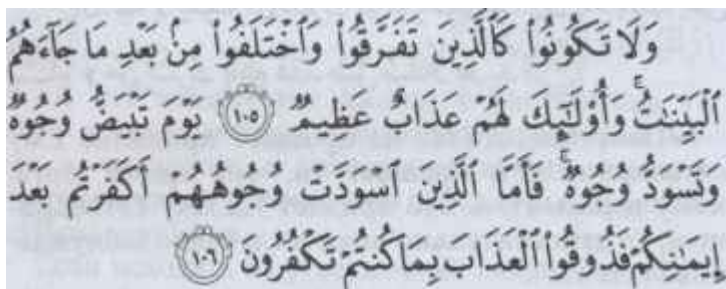 وَلَا تَكُونُوا۟ كَٱلَّذِينَ تَفَرَّقُوا۟ وَٱخْتَلَفُوا۟ مِنۢ بَعْدِ مَا جَآءَهُمُ
ٱلْبَيِّنَٰتُ ۚ وَأُو۟لَٰٓئِكَ لَهُمْ عَذَابٌ عَظِيمٌ ١٠٥ يَوْمَ تَبْيَضُّ وُجُوهٌ
وَتَسْوَدُّ وُجُوهٌ ۚ فَأَمَّا ٱلَّذِينَ ٱسْوَدَّتْ وُجُوهُهُمْ أَكَفَرْتُم بَعْدَ
إِيمَٰنِكُمْ فَذُوقُوا۟ ٱلْعَذَابَ بِمَا كُنتُمْ تَكْفُرُونَ ١٠٦